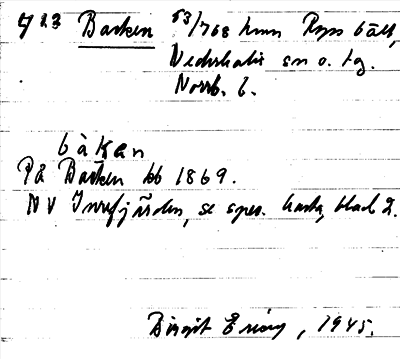 723 Backen 53/768 hmn Ryss bält,
Nederkalix sn o. tg.
Norrb. l.
bàkan
På Backen kb 1869.
NV Innefjärden, se spec. karta, blad 2.
Birgit Ericz, 1945.